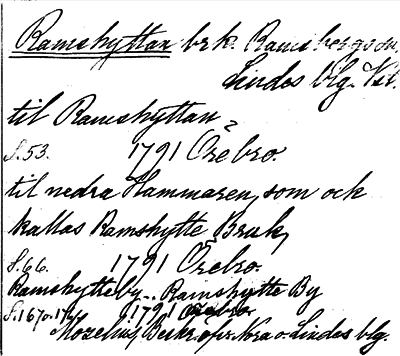 Ramshyttan brk. Ramsbergs sn,
Lindes blg. Vstl.
til Ramshyttan
S. 53. 1791 Örebro.
til nedra Hammaren, som och
kallas Ramshytte Bruk,
S. 66. 1791 Örebro.
Ramshytteby - Ramshytte By
S. 167 o. 1791 Örebro.
Mozelius, Beskr. öfver Nora o. Lindes blg.